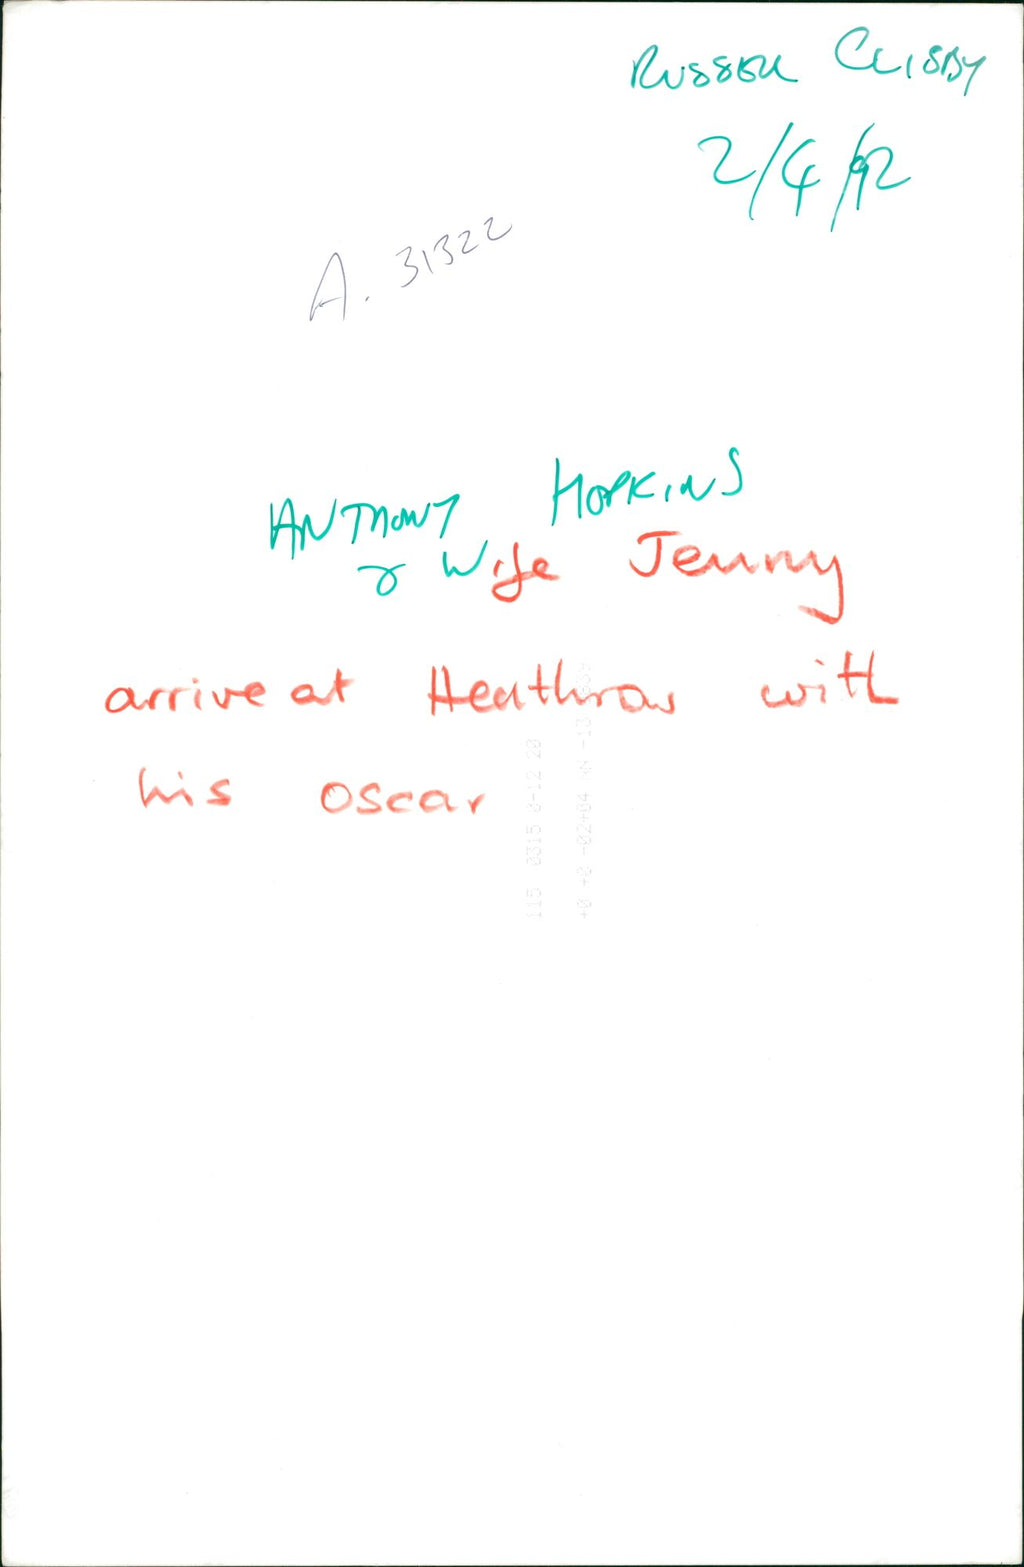 RUSSELL CLISBY
2/4/92
A. 31322
ANTHONY HOPKINS
& Wife Jenny
arrive at Heathrow with
his oscar
115 0315 0-12 20
+0 +0 -02+04 NN -13